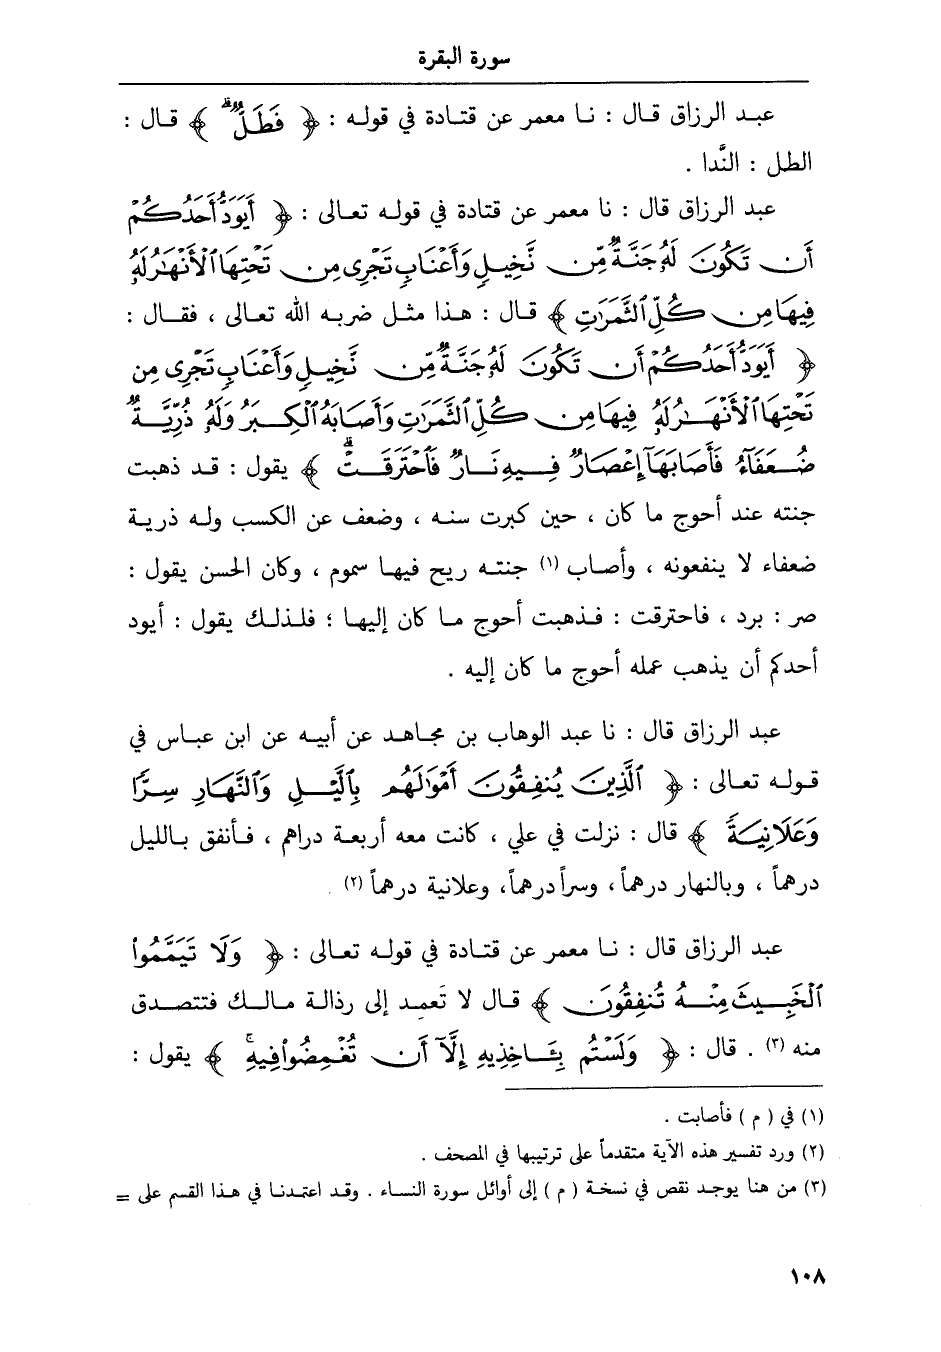 سورة البقرة
عبد الرزاق قال : نا معمر عن قتادة في قوله : ﴿ فَطَلٌّ ﴾ قال :
الطل : النَّدا .
عبد الرزاق قال : نا معمر عن قتادة في قوله تعالى : ﴿ أَيَوَدُّ أَحَدُكُمْ
أَن تَكُونَ لَهُ جَنَّةٌ مِّن نَّخِيلٍ وَأَعْنَابٍ تَجْرِى مِن تَحْتِهَا ٱلْأَنْهَٰرُ لَهُ
فِيهَا مِن كُلِّ ٱلثَّمَرَٰتِ ﴾ قال : هذا مثل ضربه الله تعالى ، فقال :
﴿ أَيَوَدُّ أَحَدُكُمْ أَن تَكُونَ لَهُ جَنَّةٌ مِّن نَّخِيلٍ وَأَعْنَابٍ تَجْرِى مِن
تَحْتِهَا ٱلْأَنْهَٰرُ لَهُ فِيهَا مِن كُلِّ ٱلثَّمَرَٰتِ وَأَصَابَهُ ٱلْكِبَرُ وَلَهُ ذُرِّيَّةٌ
ضُعَفَآءُ فَأَصَابَهَآ إِعْصَارٌ فِيهِ نَارٌ فَٱحْتَرَقَتْ ﴾ يقول : قد ذهبت
جنته عند أحوج ما كان ، حين كبرت سنه ، وضعف عن الكسب وله ذرية
ضعفاء لا ينفعونه ، وأصاب (١) جنته ريح فيها سموم ، وكان الحسن يقول :
صر : برد ، فاحترقت : فذهبت أحوج ما كان إليها ؛ فلذلك يقول : أيود
أحدكم أن يذهب عمله أحوج ما كان إليه .
عبد الرزاق قال : نا عبد الوهاب بن مجاهد عن أبيه عن ابن عباس في
قوله تعالى : ﴿ ٱلَّذِينَ يُنفِقُونَ أَمْوَٰلَهُم بِٱلَّيْلِ وَٱلنَّهَارِ سِرًّا
وَعَلَانِيَةً ﴾ قال : نزلت في علي ، كانت معه أربعة دراهم ، فأنفق بالليل
درهماً ، وبالنهار درهماً ، وسراً درهماً، وعلانية درهماً (٢) .
عبد الرزاق قال : نا معمر عن قتادة في قوله تعالى : ﴿ وَلَا تَيَمَّمُوا۟
ٱلْخَبِيثَ مِنْهُ تُنفِقُونَ ﴾ قال لا تَعمد إلى رذالة مالك فتتصدق
منه (٣) . قال : ﴿ وَلَسْتُم بِـَٔاخِذِيهِ إِلَّآ أَن تُغْمِضُوا۟ فِيهِ ﴾ يقول :
(١) في ( م ) فأصابت .
(٢) ورد تفسير هذه الآية متقدماً على ترتيبها في المصحف .
(٣) من هنا يوجد نقص في نسخة ( م ) إلى أوائل سورة النساء . وقد اعتمدنا في هذا القسم على =
١٠٨